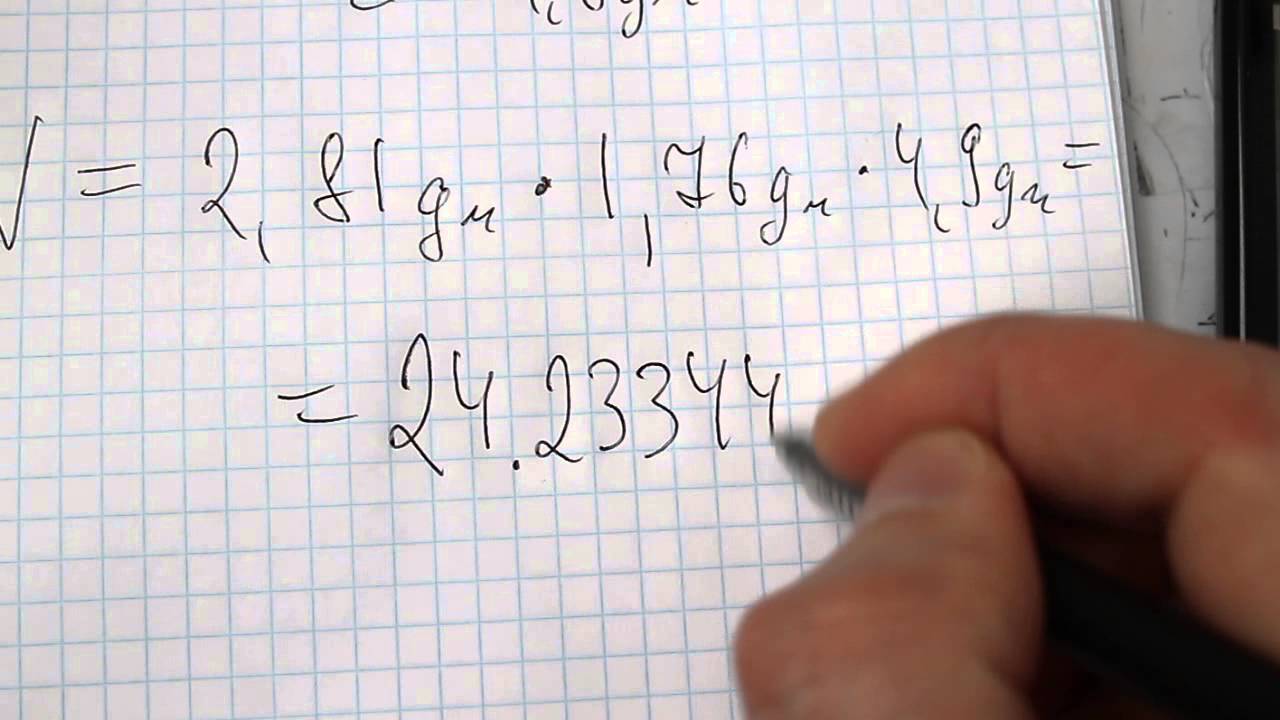 V = 2,81 дм · 1,76 дм · 4,9 дм =
= 24.23344